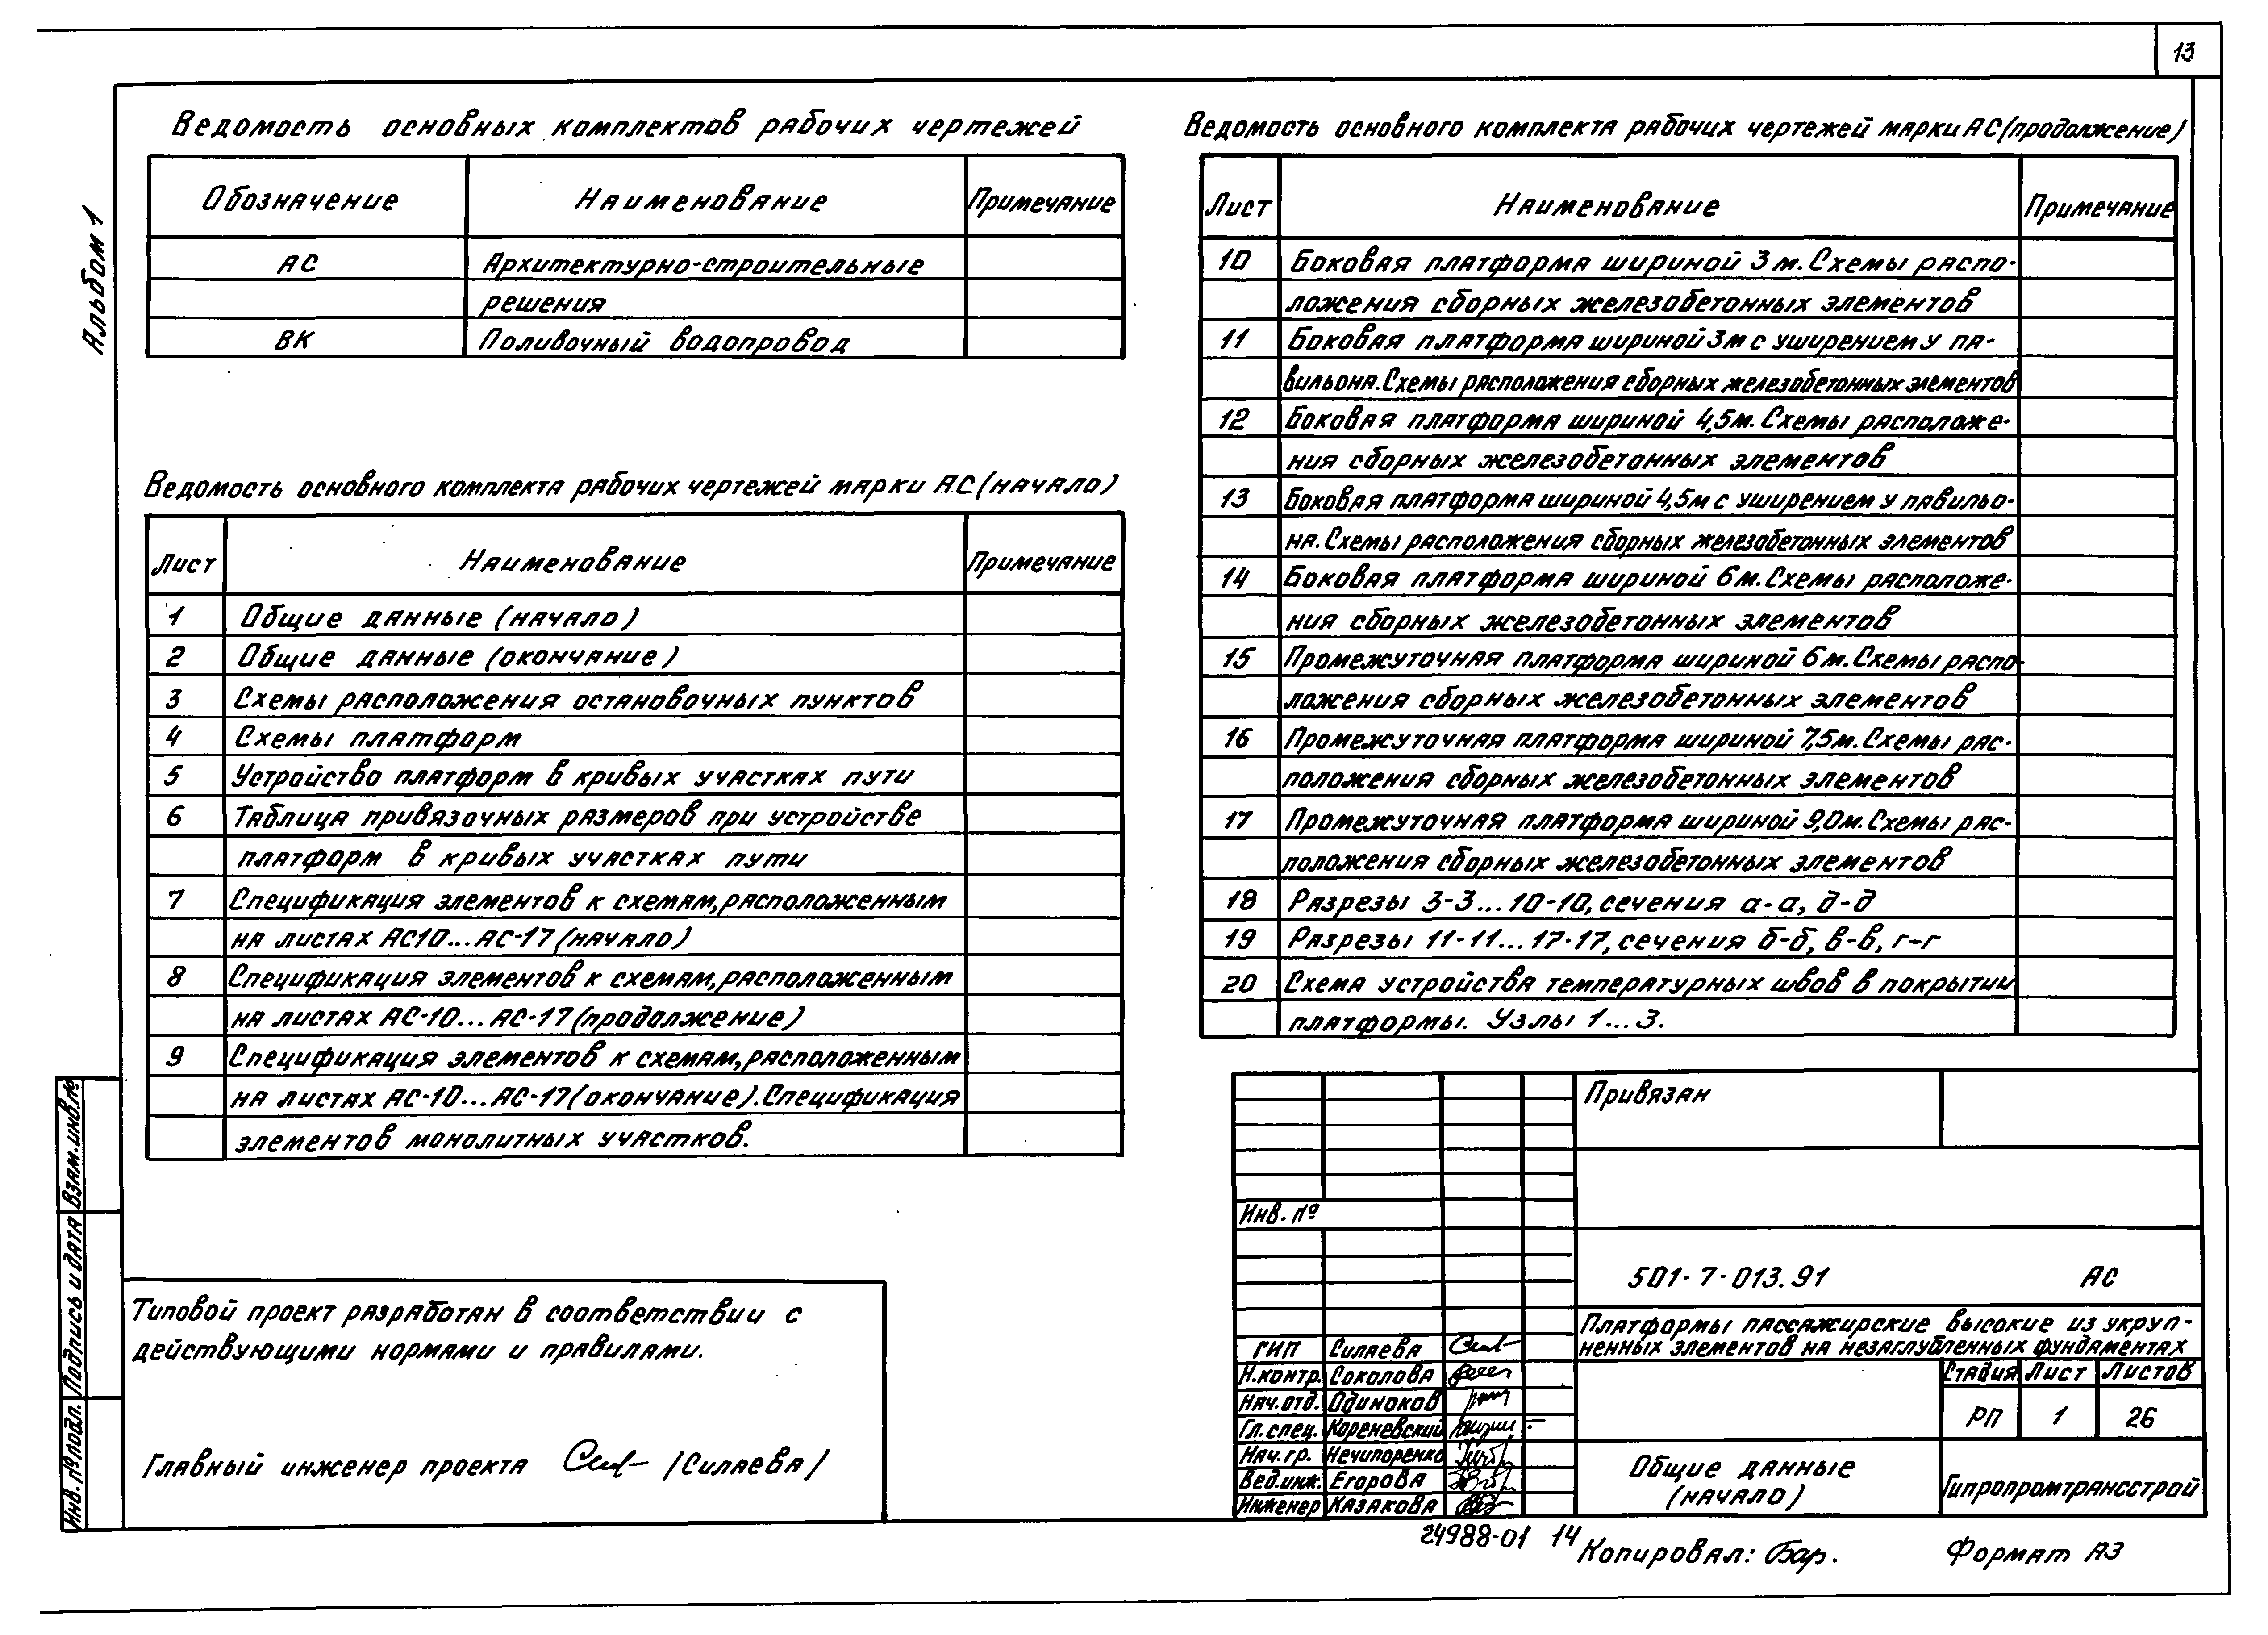 13
Альбом 1
Ведомость основных комплектов рабочих чертежей
Обозначение Наименование Примечание
АС Архитектурно-строительные
решения
ВК Поливочный водопровод
Ведомость основного комплекта рабочих чертежей марки АС (начало)
Лист Наименование Примечание
1 Общие данные (начало)
2 Общие данные (окончание)
3 Схемы расположения остановочных пунктов
4 Схемы платформ
5 Устройство платформ в кривых участках пути
6 Таблица привязочных размеров при устройстве
платформ в кривых участках пути
7 Спецификация элементов к схемам, расположенным
на листах АС10...АС-17 (начало)
8 Спецификация элементов к схемам, расположенным
на листах АС-10...АС-17 (продолжение)
9 Спецификация элементов к схемам, расположенным
на листах АС-10...АС-17 (окончание). Спецификация
элементов монолитных участков.
Ведомость основного комплекта рабочих чертежей марки АС (продолжение)
Лист Наименование Примечание
10 Боковая платформа шириной 3 м. Схемы распо-
ложения сборных железобетонных элементов
11 Боковая платформа шириной 3м с уширением у па-
вильона. Схемы расположения сборных железобетонных элементов
12 Боковая платформа шириной 4,5м. Схемы расположе-
ния сборных железобетонных элементов
13 Боковая платформа шириной 4,5м с уширением у павильо-
на. Схемы расположения сборных железобетонных элементов
14 Боковая платформа шириной 6м. Схемы расположе-
ния сборных железобетонных элементов
15 Промежуточная платформа шириной 6м. Схемы распо-
ложения сборных железобетонных элементов
16 Промежуточная платформа шириной 7,5м. Схемы рас-
положения сборных железобетонных элементов
17 Промежуточная платформа шириной 9,0м. Схемы рас-
положения сборных железобетонных элементов
18 Разрезы 3-3...10-10, сечения а-а, д-д
19 Разрезы 11-11...17-17, сечения б-б, в-в, г-г
20 Схема устройства температурных швов в покрытии
платформы. Узлы 1...3.
Взам. инв. №
Подпись и дата
Инв. № подл.
Типовой проект разработан в соответствии с
действующими нормами и правилами.
Главный инженер проекта (Силаева)
Привязан
Инв. №
501-7-013.91 АС
Платформы пассажирские высокие из укруп-
ненных элементов на незаглубленных фундаментах
ГИП Силаева
Н.контр. Соколова
Нач.отд. Одиноков
Гл.спец. Кореневский
Нач.гр. Нечипоренко
Вед.инж. Егорова
Инженер Казакова
Стадия Лист Листов
РП 1 26
Общие данные
(начало)
Гипропромтрансстрой
24988-01 14
Копировал: Бар. Формат А3